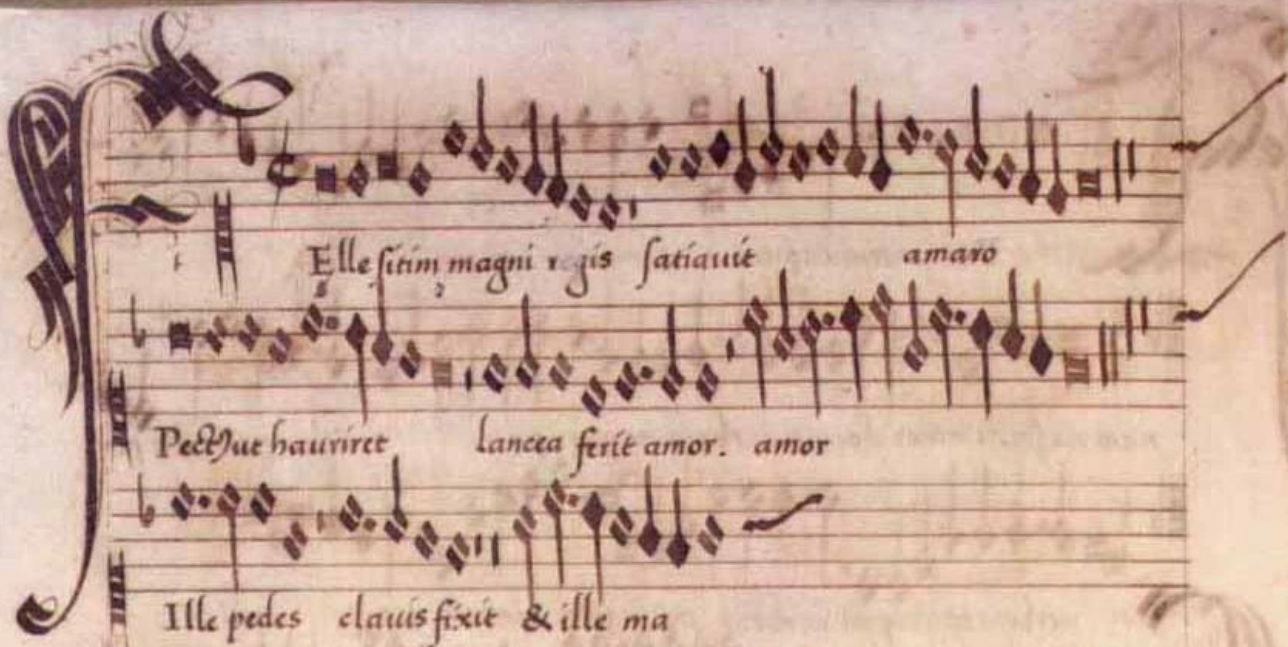 FElle ſitim magni regis ſatiauit amaro
Pectꝰut hauriret lancea ferit amor. amor
Ille pedes clauis fixit & ille ma